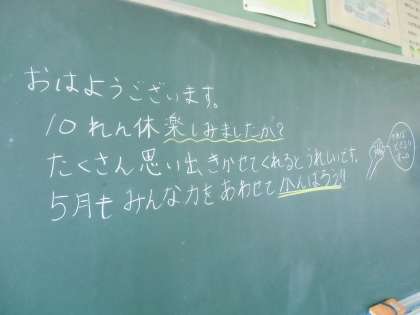 おはようございます。
10れん休楽しみましたか?
たくさん思い出きかせてくれるとうれしいです。
5月もみんな力をあわせてがんばろう!!